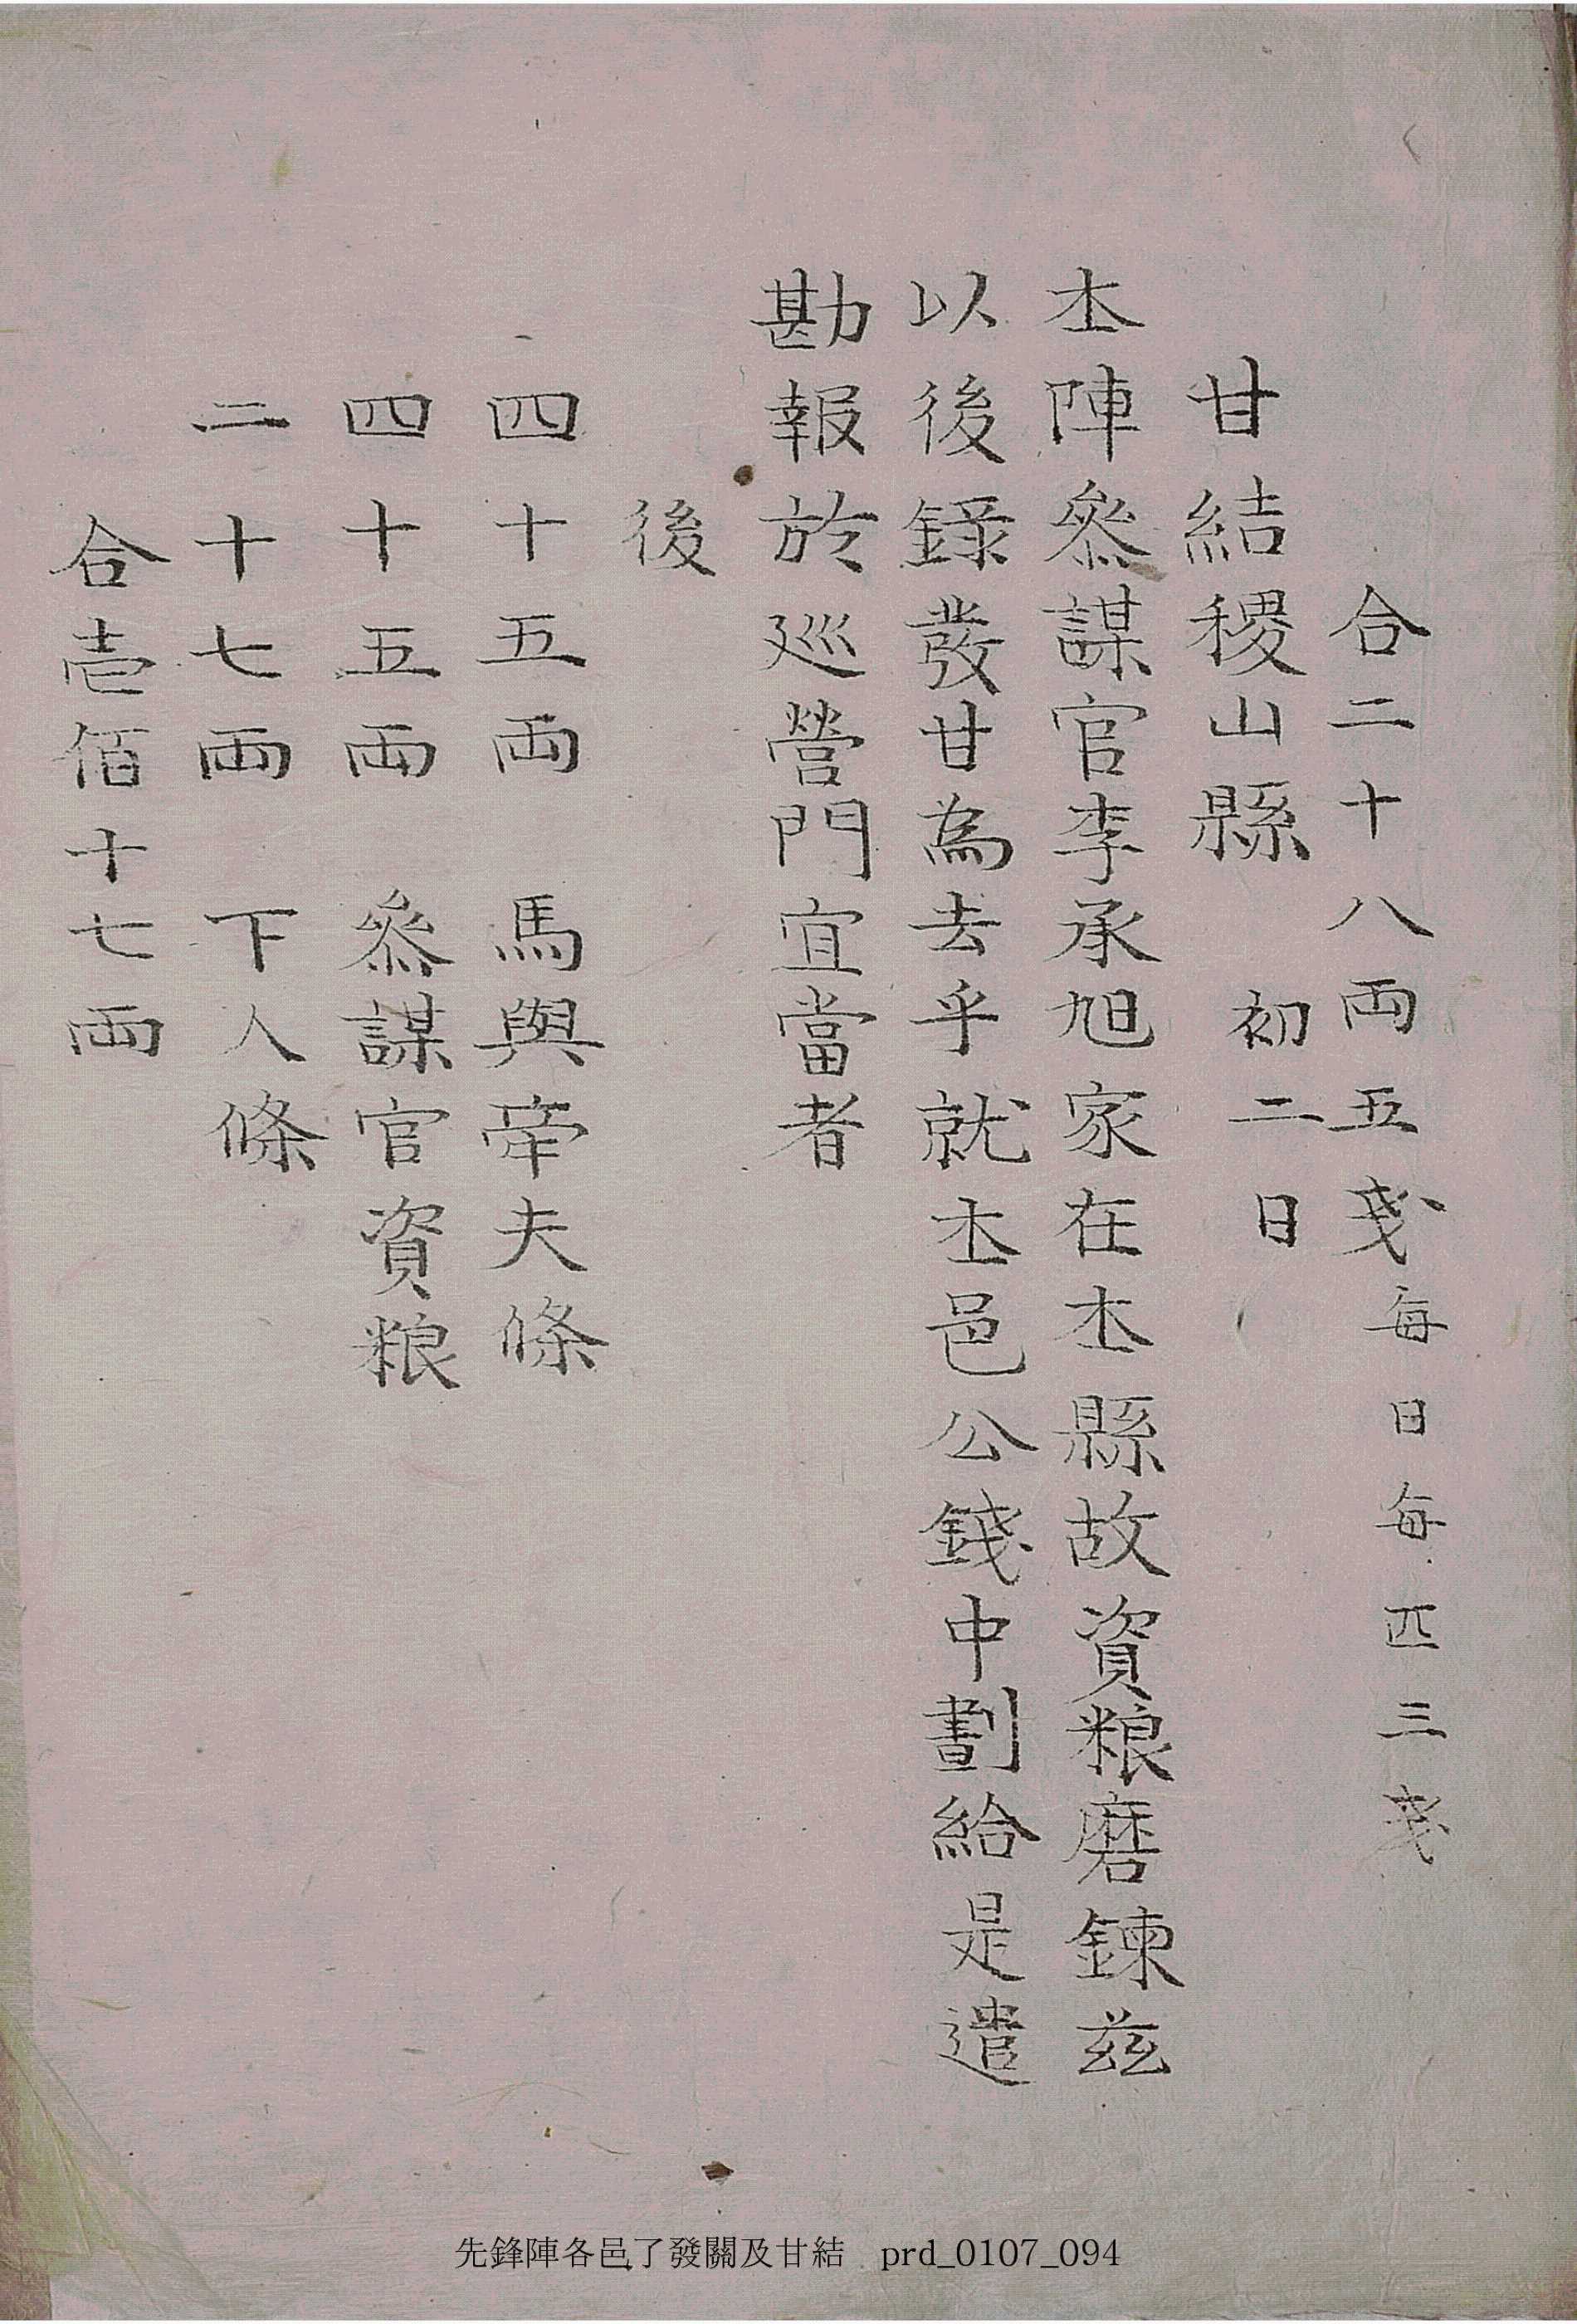 合二十八両五戔每日每匹三戔
甘結稷山縣 初二日
本陣叅謀官李承旭家在本縣故資粮磨鍊玆
以後錄發甘為去乎就本邑公錢中劃給是遣
勘報於巡營門宜當者
後
四十五両 馬與牽夫條
四十五両 叅謀官資粮
二十七両 下人條
合壱佰十七両
先鋒陣各邑了發關及甘結 prd_0107_094